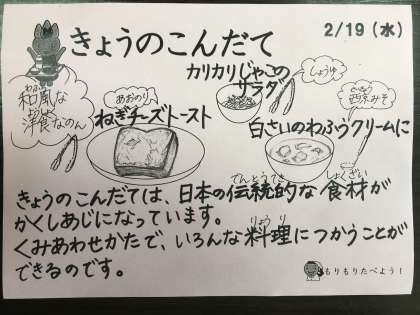 きょうのこんだて
2/19 (水)
カリカリじゃこの
サラダ
しょうゆ
わふう
和風な
洋食なのん
あおのり
ねぎチーズトースト
西京みそ
白さいのわふうクリームに
きょうのこんだては、日本の伝統的な食材が
でんとうてき
しょくざい
かくしあじになっています。
くみあわせかたで、いろんな料理につかうことが
りょうり
できるのです。
もりもりたべよう!